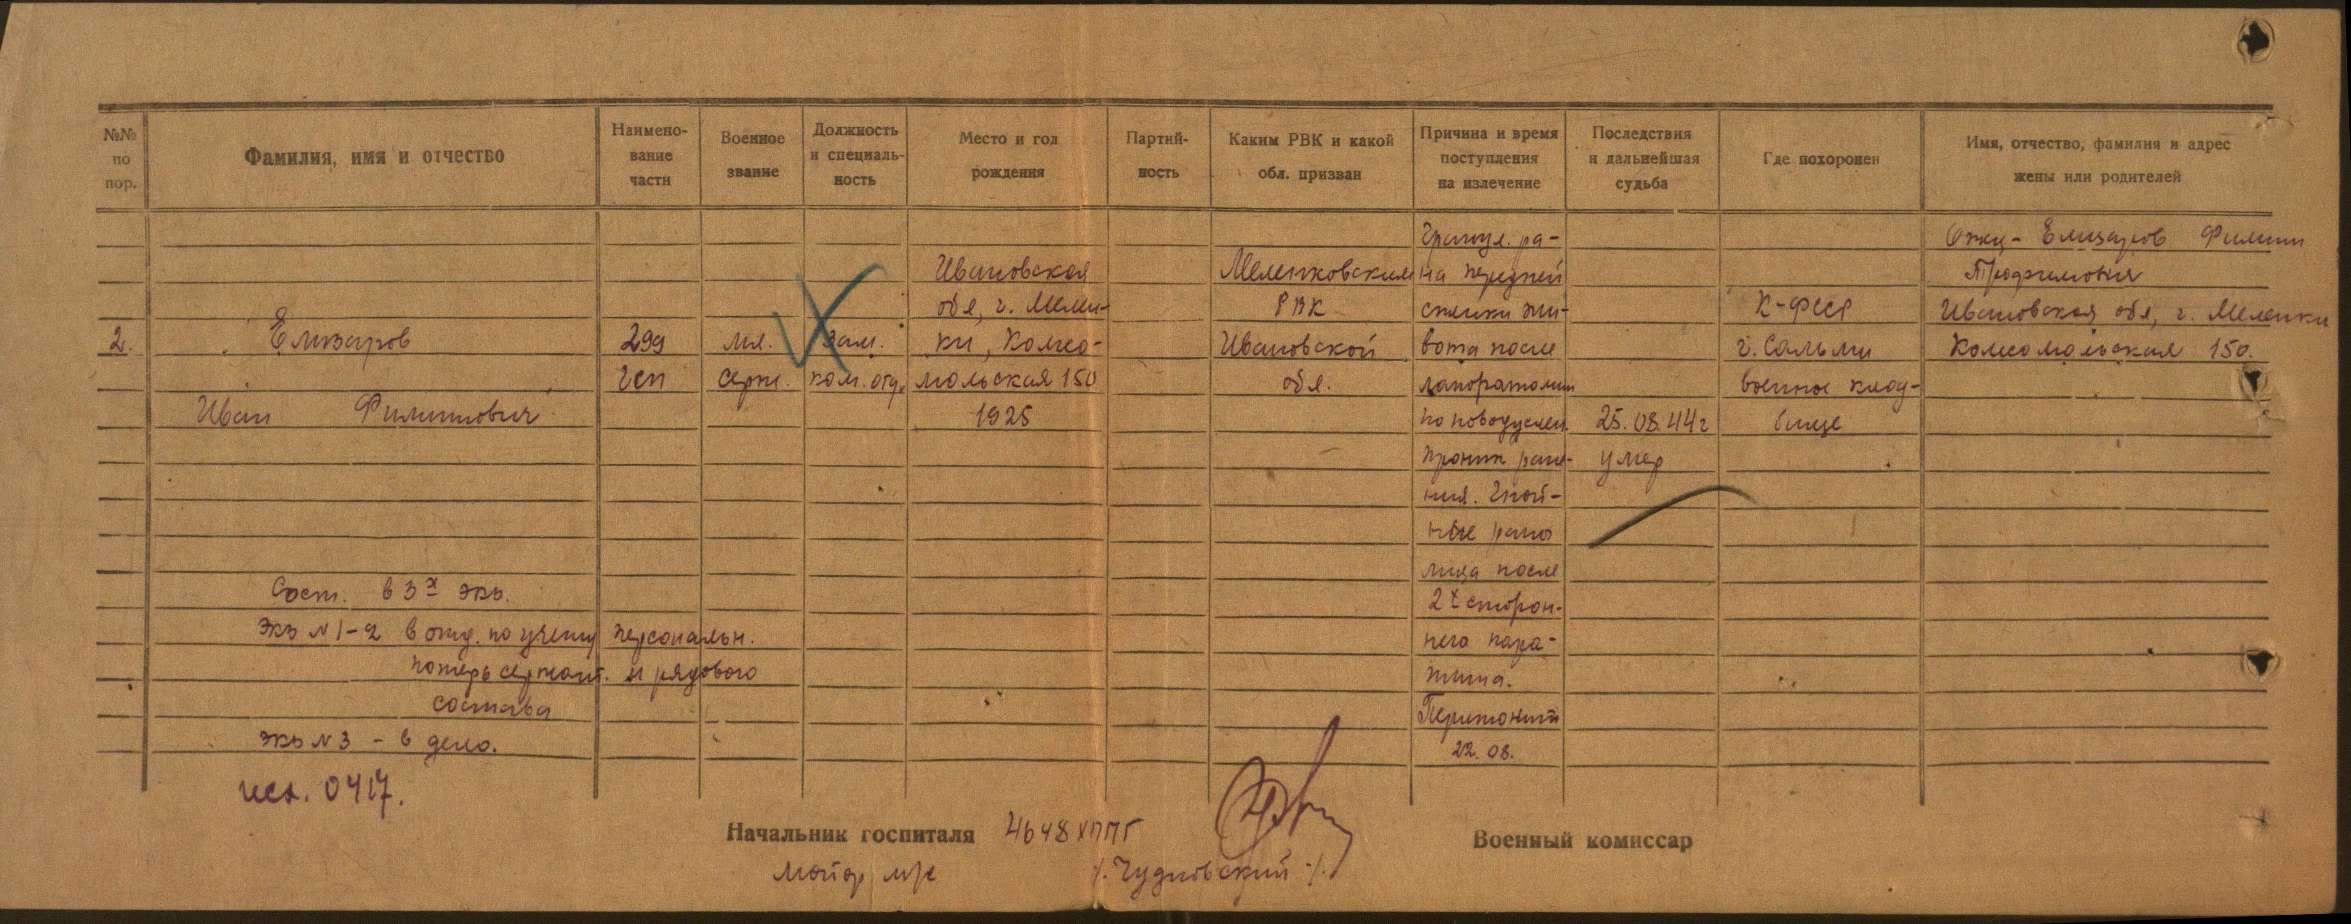 №№ по пор.
Фамилия, имя и отчество
Наимено-
вание
части
Военное
звание
Должность
и специаль-
ность
Место и год
рождения
Партий-
ность
Каким РВК и какой
обл. призван
Причина и время
поступления
на излечение
Последствия
и дальнейшая
судьба
Где похоронен
Имя, отчество, фамилия и адрес
жены или родителей
2.
Елизаров
Иван Филиппович
299
гсп
мл.
серж.
зам.
ком. отд.
Ивановская
обл, г. Мелен-
ки, Комсо-
мольская 150
1925
Меленковским
РВК
Ивановской
обл.
Гранул. ра-
на передней
стенки жи-
вота после
лапоратомии
по поводу
проник ране-
ния. Гной-
ные раны
лица после
2х сторон-
него паро-
тита.
Перитонит
22.08.
25.08.44г
умер
К-ФССР
г. Сальми
военное клад-
бище
Отец - Елизаров Филипп
Трофимович
Ивановская обл, г. Меленки
Комсомольская 150.
Сост. в 3х экз.
Экз №1-2 в отд. по учету персональн.
потерь сержант. и рядового
состава
экз №3 - в дело.
исх. 0417.
Начальник госпиталя 4648 ХППГ
майор м/с /. Чудновский ./.
Военный комиссар